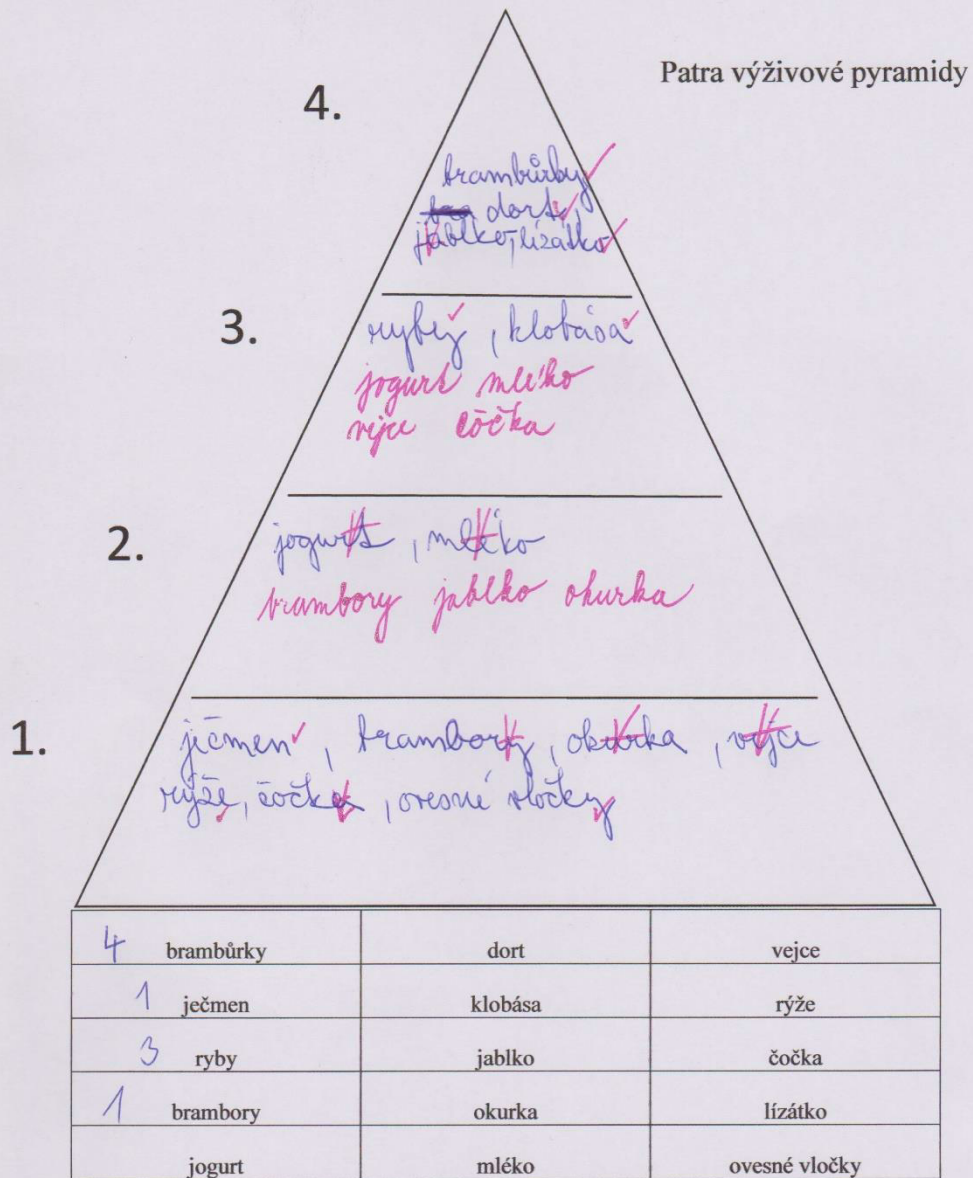 Patra výživové pyramidy
4.
brambůrky
dort,
jablko, lízátko
3.
ryby, klobása
jogurt mléko
vejce čočka
2.
jogurt, mléko
brambory jablko okurka
1.
ječmen, brambory, okurka, vejce
rýže, čočka, ovesné vločky
4 brambůrky dort vejce
1 ječmen klobása rýže
3 ryby jablko čočka
1 brambory okurka lízátko
jogurt mléko ovesné vločky